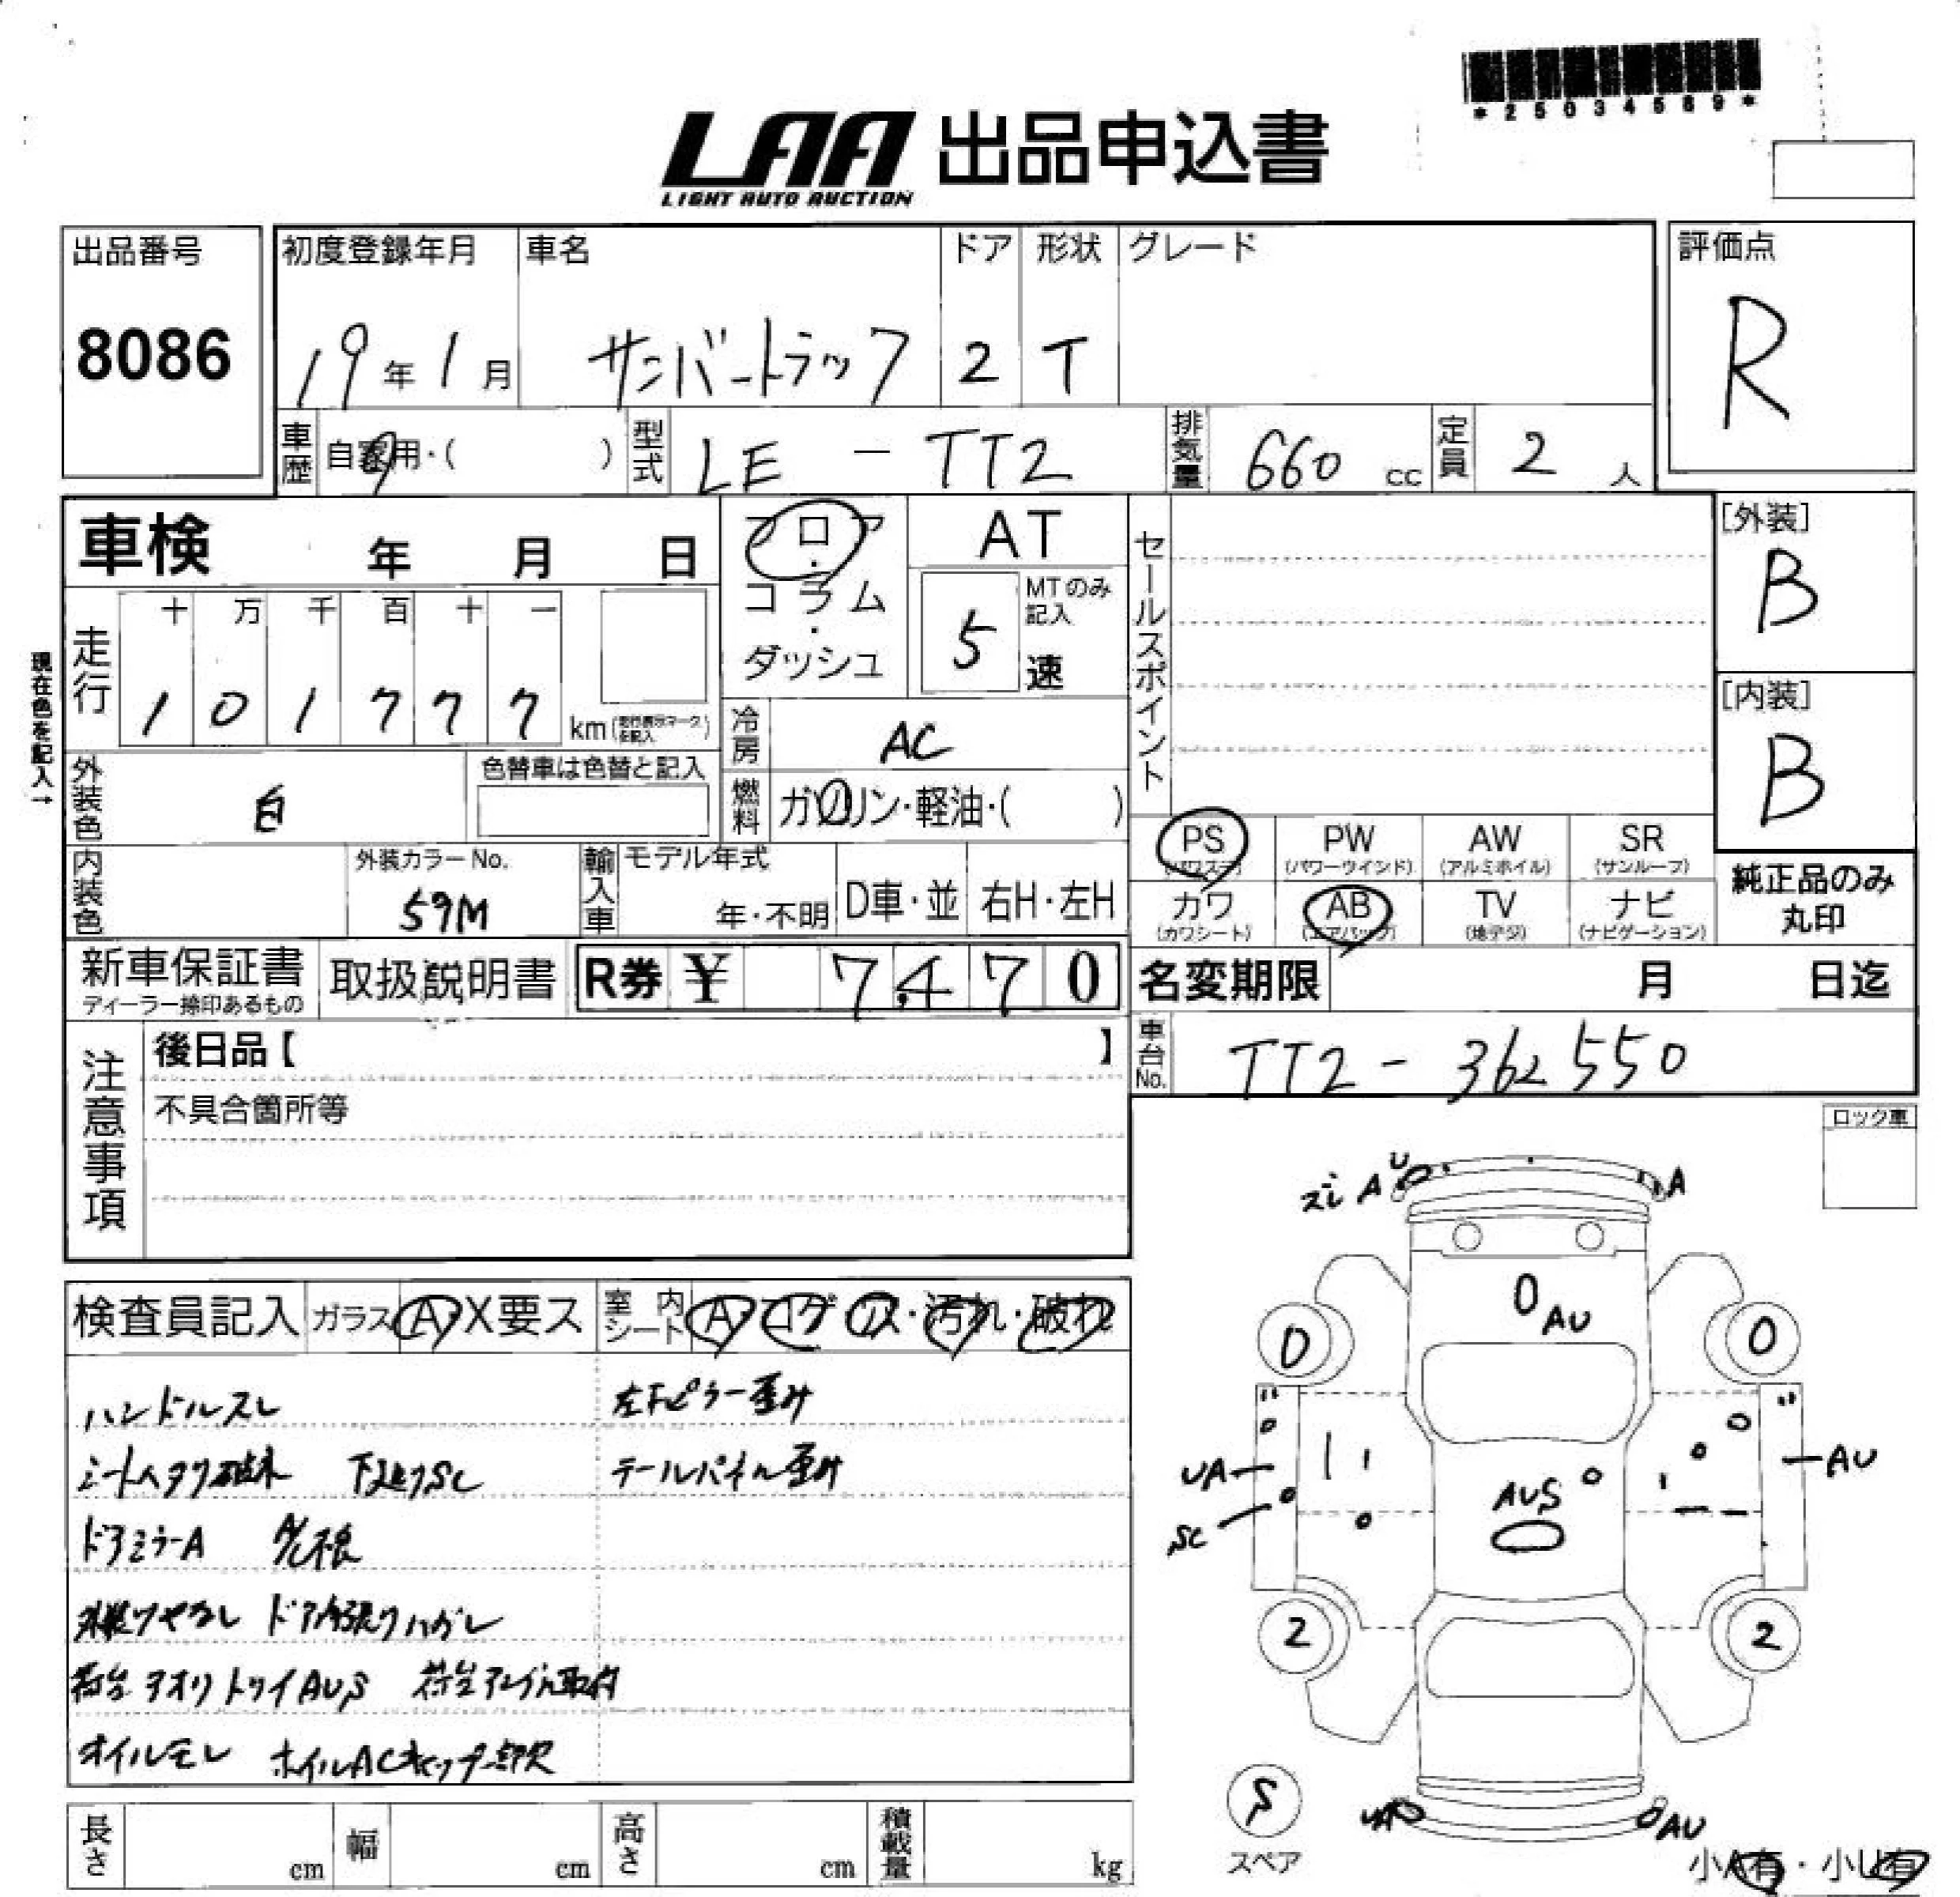 *25034589*
LAA 出品申込書
LIGHT AUTO AUCTION
出品番号 初度登録年月 車名 ドア 形状 グレード 評価点
8086 19年1月 サンバートラック 2 T R
車歴 自家用・( ) 型式 LE - TT2 排気量 660 cc 定員 2 人
車検 年 月 日 フロア・コラム・ダッシュ AT セールスポイント [外装]
B
MTのみ記入
5 速
走行 十 万 千 百 十 一
1 0 1 7 7 7 km(走行表示マークを記入)
現在色を記入→
[内装]
B
冷房 AC
外装色 白 色替車は色替と記入
燃料 ガソリン・軽油・( )
PS PW AW SR
(パワステ) (パワーウインド) (アルミホイル) (サンルーフ)
内装色 外装カラーNo. 輸入車 モデル年式
59M 年・不明 D車・並 右H・左H
カワ AB TV ナビ
(カワシート) (エアバッグ) (地デジ) (ナビゲーション)
純正品のみ
丸印
新車保証書 取扱説明書 R券 ¥ 7,470 名変期限 月 日迄
ディーラー捺印あるもの
注意事項 後日品【 】
車台No. TT2 - 362550
不具合箇所等
ロック車
検査員記入 ガラス A・X要ス 室内シート A・コゲ・アス・汚れ・破れ
ハンドルスレ 左下ピラー歪み
下廻りSC テールパイル歪み
ドアミラーA
外装ツヤなし ドア内張りハガレ
荷台アオリトリイAUS 荷台 取付
オイルモレ ホイルACキャップ欠
U
A A
AU
0 0
UA AU
AUS
SC
2 2
S
スペア
UA AU
小A有・小U有
長さ cm 幅 cm 高さ cm 積載量 kg